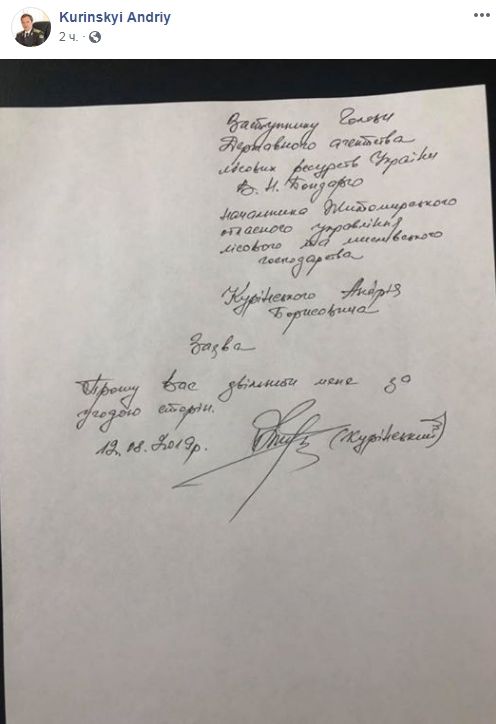 Kurinskyi Andriy
2 ч. ·
Заступнику Голови
Державного агентства
лісових ресурсів України
В. Н. Бондарю
Начальника Житомирського
обласного управління
лісового та мисливського
господарства
Курінського Андрія
Борисовича
Заява
Прошу Вас звільнити мене за
угодою сторін.
12.08.2019р.
(Курінський)